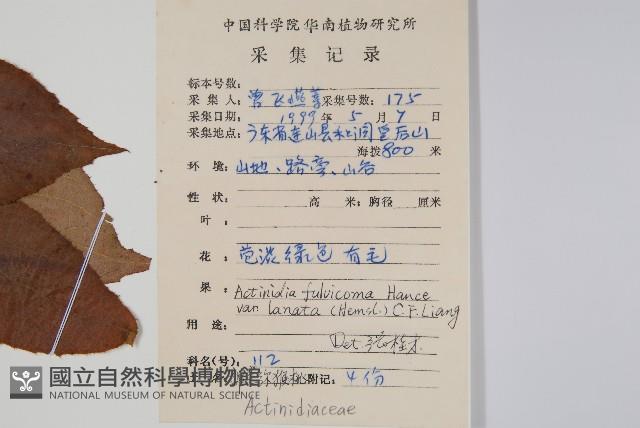 中国科学院华南植物研究所
采集记录
标本号数：
采集人：曾飞燕等 采集号数：175
采集日期：1999年5月7日
采集地点：广东省连山县禾洞 后山
海拨800米
环境：山地、路旁、山谷
性状： 高 米；胸径 厘米
叶：
花：苞淡绿色 有毛
果：
Actinidia fulvicoma Hance
var. lanata (Hemsl.) C.F.Liang
用途：
Det.
科名(号)：112
猕猴桃 附记：4份
Actinidiaceae
國立自然科學博物館
NATIONAL MUSEUM OF NATURAL SCIENCE